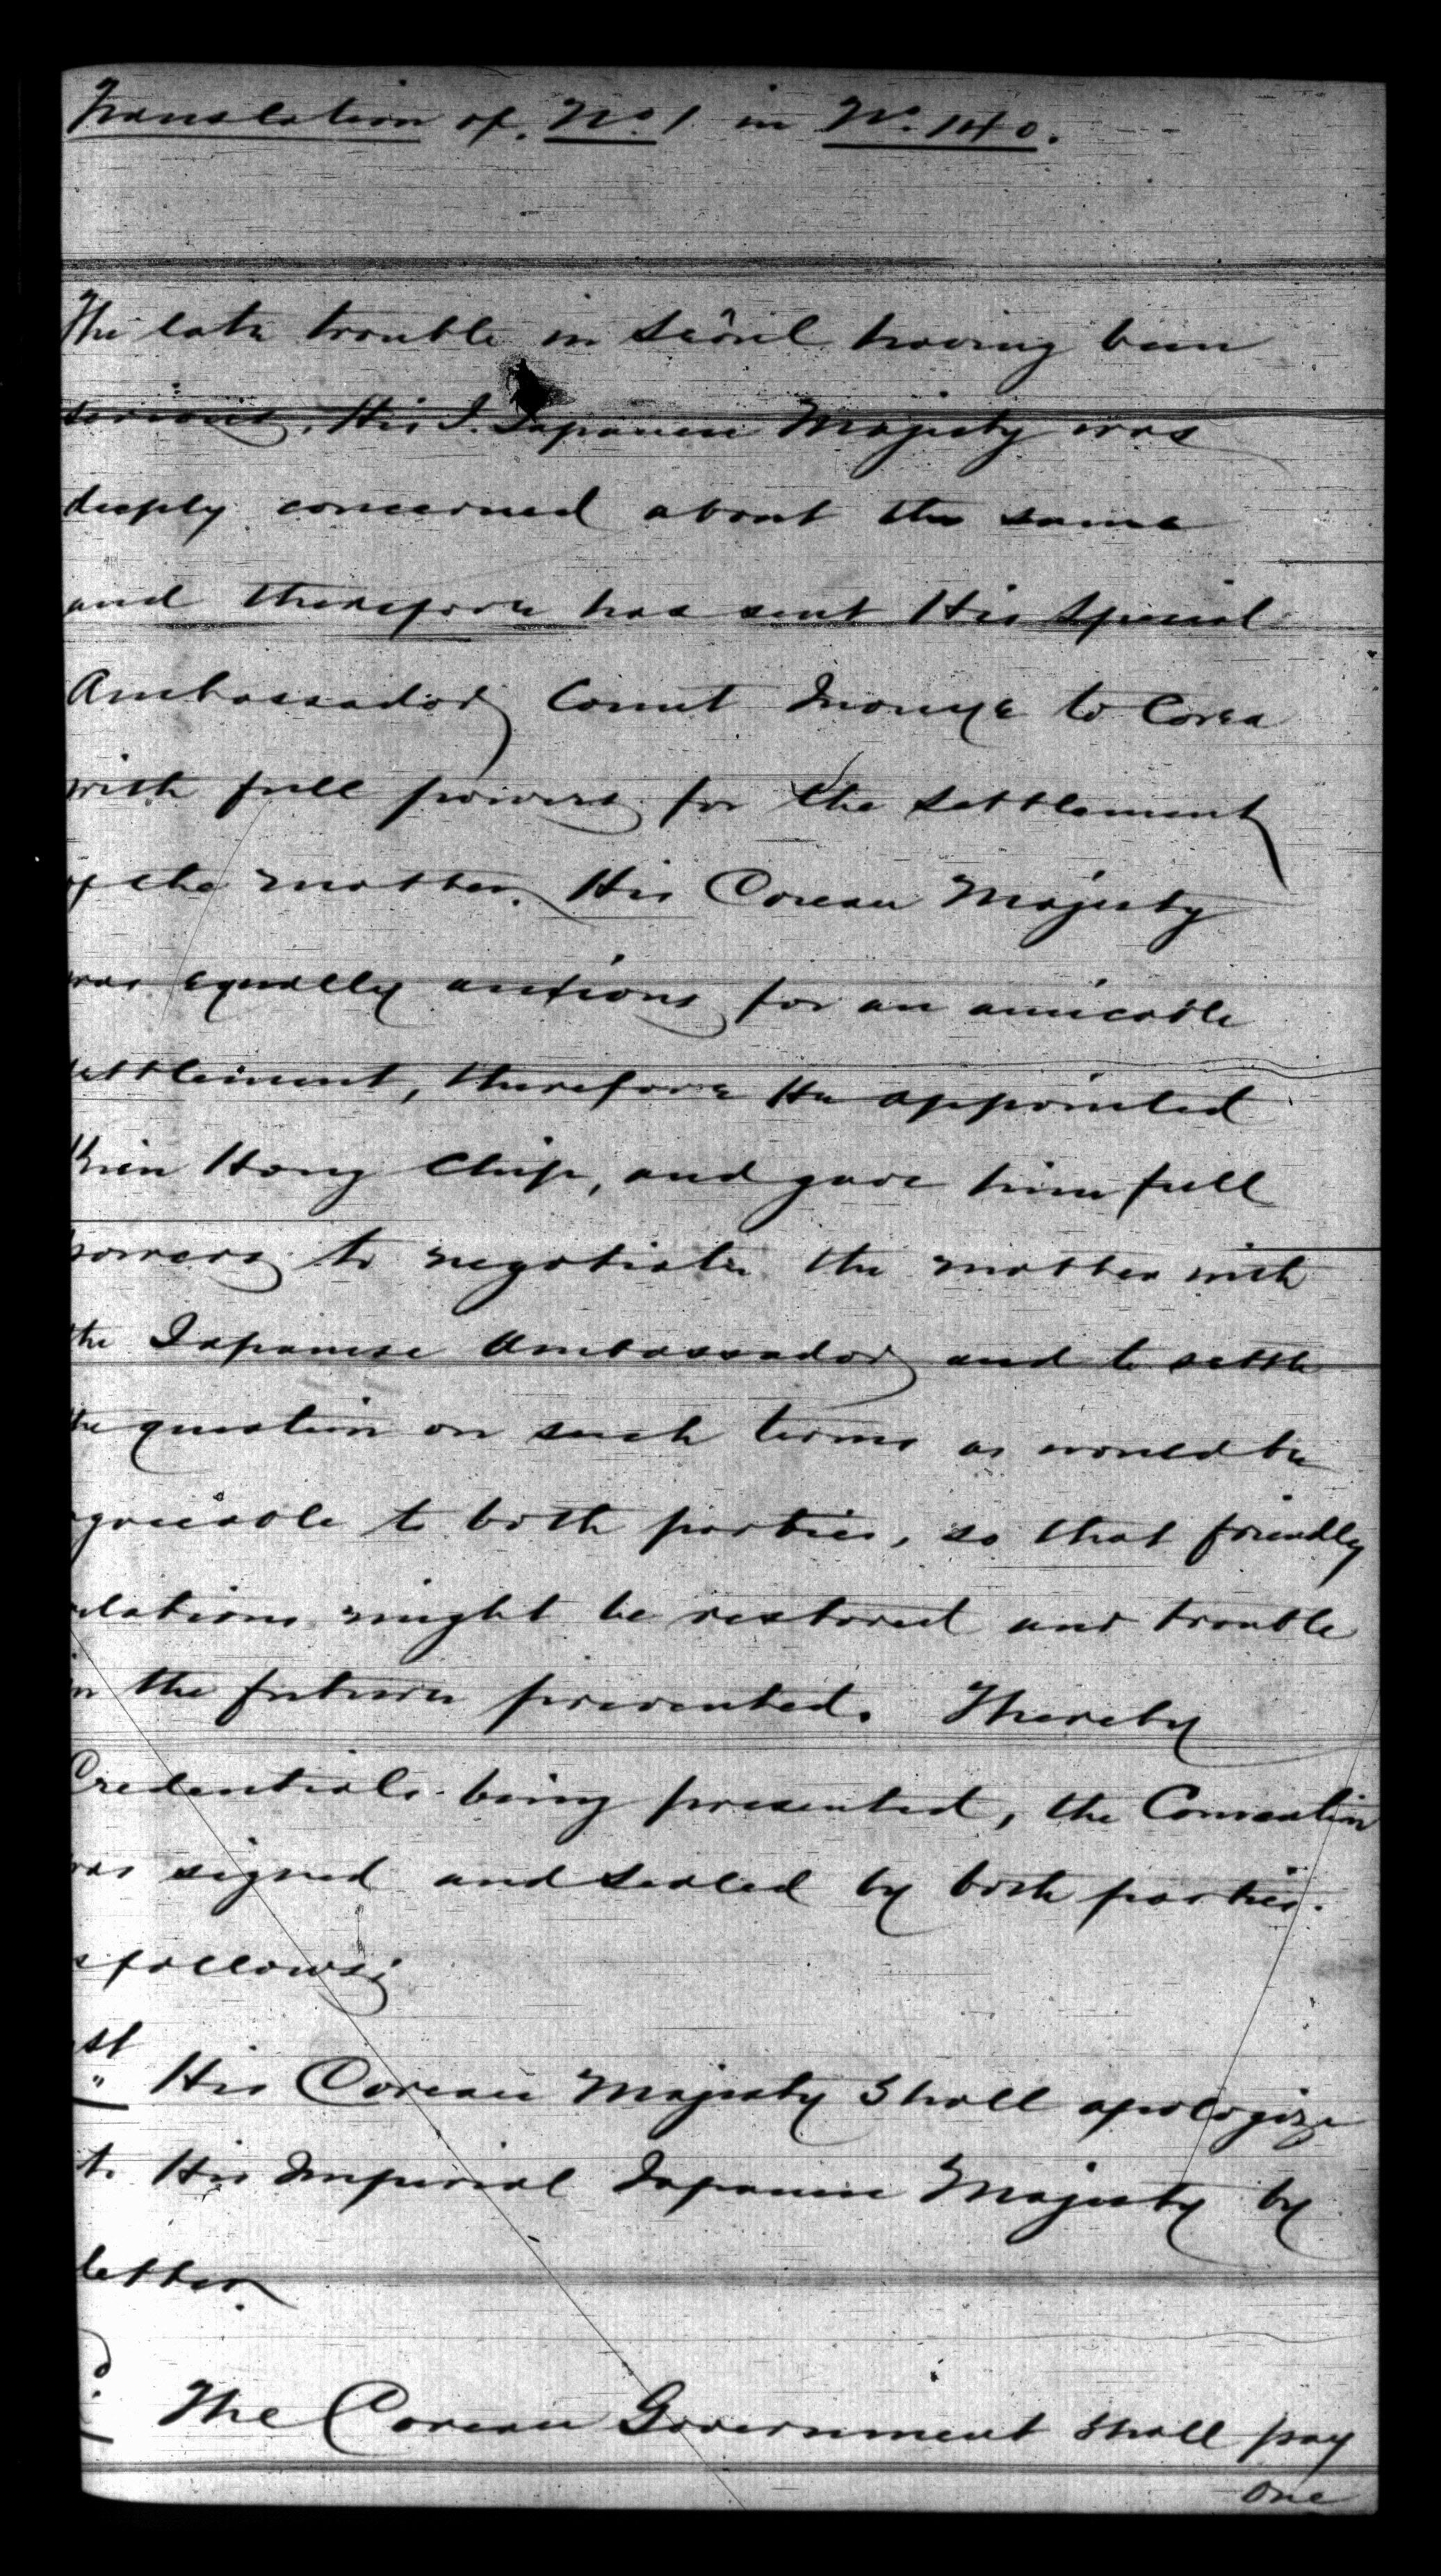 Translation of No. 1 in No. 140.
The late trouble in Seôul having been
serious, His I. Japanese Majesty was
deeply concerned about the same
and therefore has sent His Special
Ambassador Count Inouye to Corea
with full powers for the settlement
of the matter. His Corean Majesty
was equally anxious for an amicable
settlement, therefore He appointed
Kim Hong Chip, and gave him full
powers to negotiate the matter with
the Japanese Ambassador and to settle
the question on such terms as would be
agreeable to both parties, so that friendly
relations might be restored and trouble
in the future prevented. Thereby
Credentials being presented, the Convention
was signed and sealed by both parties.
as follows;
1st His Corean Majesty Shall apologize
to His Imperial Japanese Majesty by
letter.
2d. The Corean Government Shall pay
one